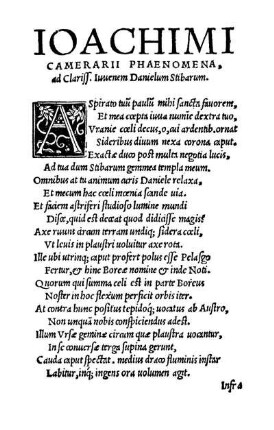 IOACHIMI
CAMERARII PHAENOMENA,
ad Clariss. Iuuenem Danielum Stibarum.
ASpirato tuũ paulũ mihi sancta fauorem,
Et mea cœpta iuua numine dextra tuo,
Vranie cœli decus, o, cui ardentib. ornat
Sideribus diuum nexa corona caput.
Exacta duo post multa negotia lucis,
Ad tua dum Stibarum gemmea templa meum.
Omnibus at tu animum curis Daniele relaxa,
Et mecum hac cœli mœnia scande uia.
Et faciem astriferi studioso lumine mundi
Disce, quid est deceat quod didicisse magis?
Axe ruuns circum terram undiq; sidera cœli,
Vt leuis in plaustri uoluitur axe rota.
Ille ubi utrinq; caput profert polus esse Pelasgo
Fertur, & hinc Boreæ nomine & inde Noti.
Quorum qui summa cœli est in parte Boreus
Noster in hoc flexum perficit orbis iter.
At contra hunc positus tepidoq; uocatus ab Austro,
Non unquã nobis conspiciendus adest.
Illum Vrsæ geminæ circum quæ plaustra uocantur,
In se conuersæ terga supina gerunt,
Cauda caput spectat. medius draco fluminis instar
Labitur, inq; ingens ora uolumen agit.
Infra